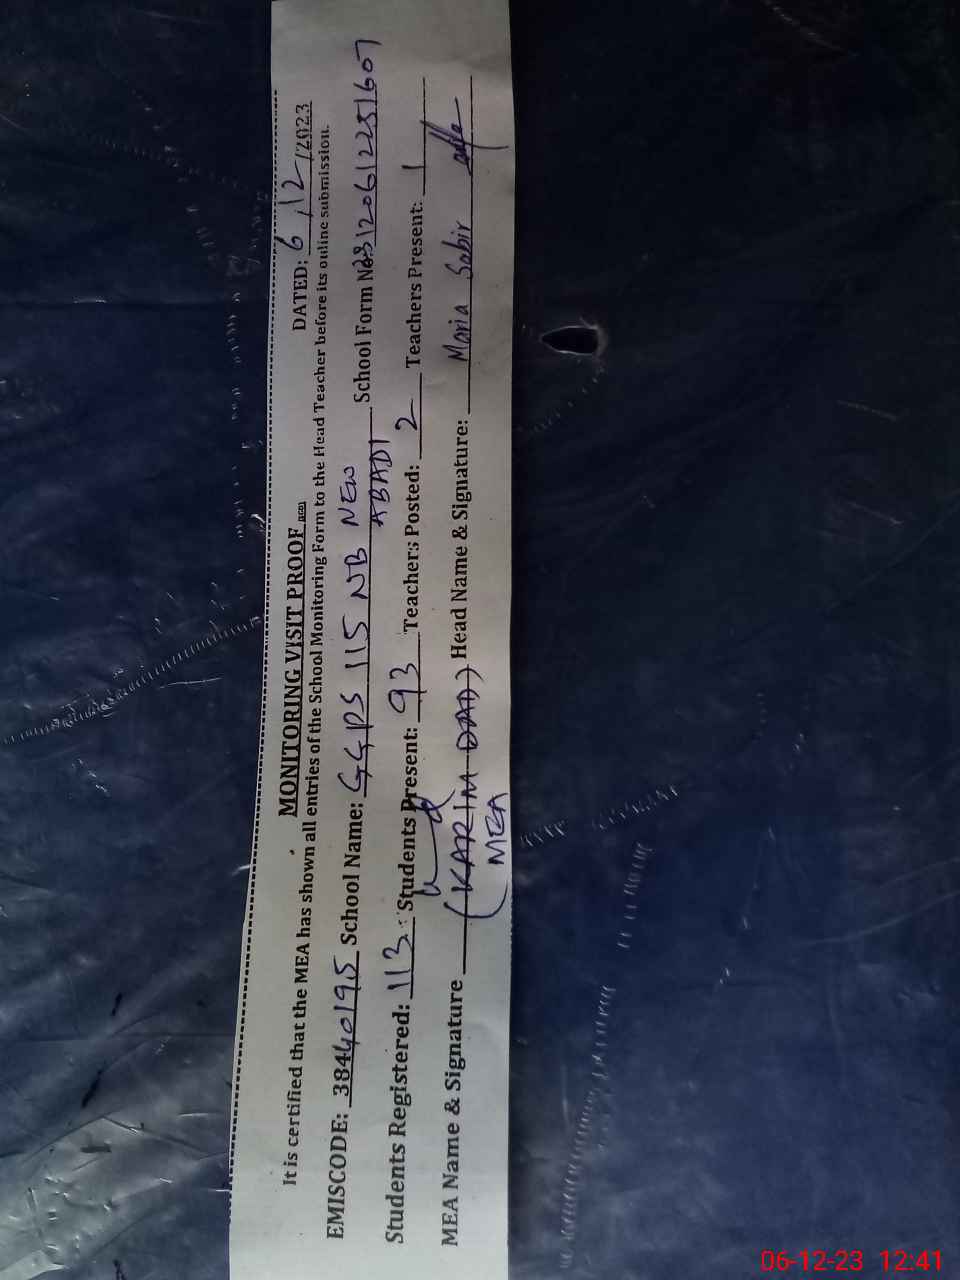 MONITORING VISIT PROOF DATED: 6/12/2023
It is certified that the MEA has shown all entries of the School Monitoring Form to the Head Teacher before its online submission.
EMISCODE: 38440195 School Name: GGPS 115 NB NEW ABADI School Form No 231206122251607
Students Registered: 113 Students Present: 93 Teachers Posted: 2 Teachers Present: 1
MEA Name & Signature (KARIM DAD) Head Name & Signature: Maria Sabir
MEA
06-12-23 12:41